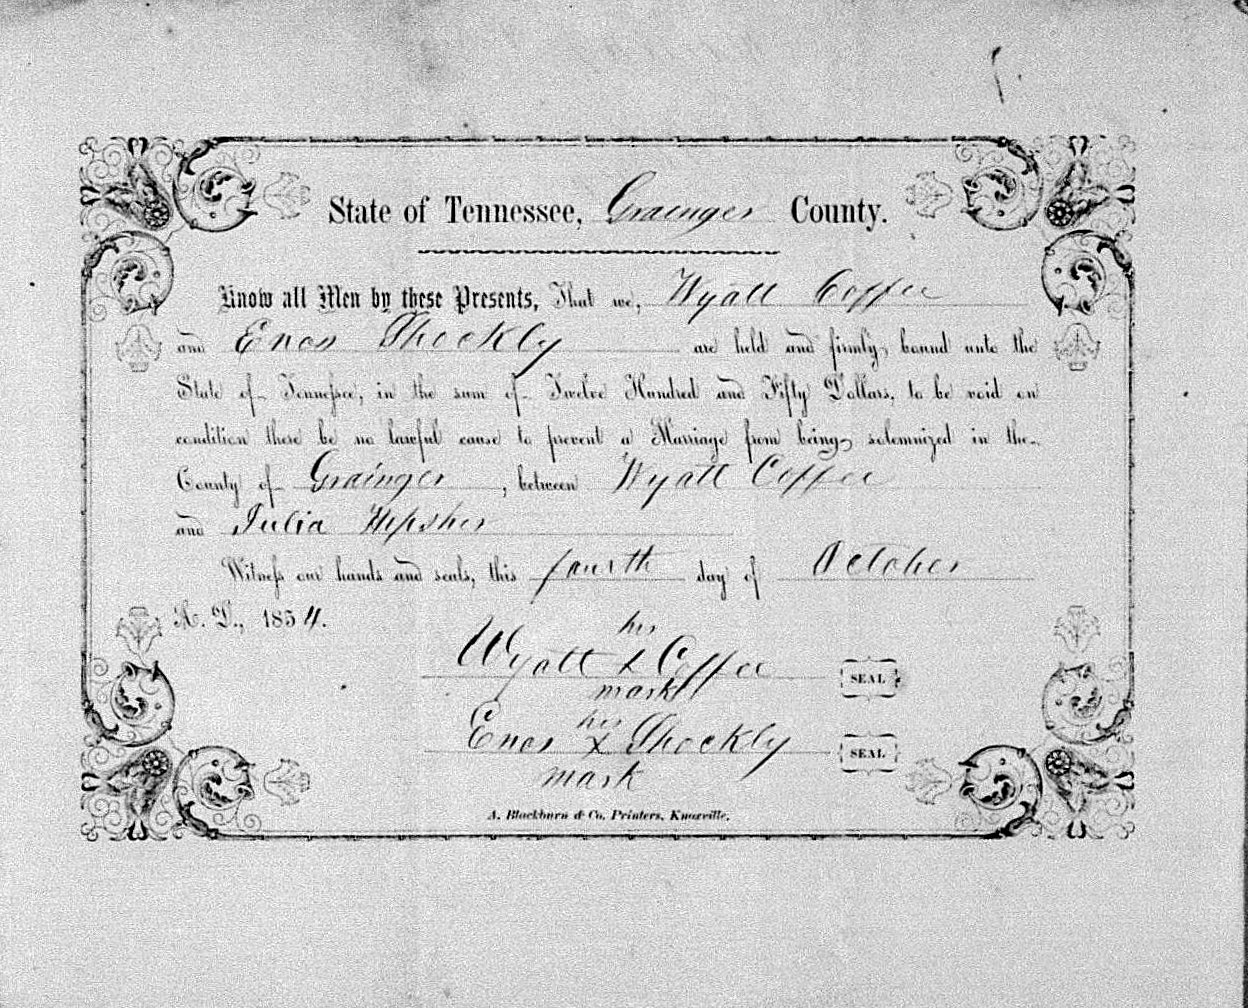 State of Tennessee, Grainger County.
Know all Men by these Presents, That we, Wyatt Coffee
and Enos Shockly are held and firmly bound unto the
State of Tennessee, in the sum of Twelve Hundred and Fifty Dollars, to be void on
condition there be no lawful cause to prevent a Marriage from being solemnized in the
County of Grainger, between Wyatt Coffee
and Julia Hipsher
Witness our hands and seals, this fourth day of October
A. D., 1854.
his
Wyatt X Coffee SEAL
mark
his
Enos X Shockly SEAL
mark
A. Blackburn & Co, Printers, Knoxville.